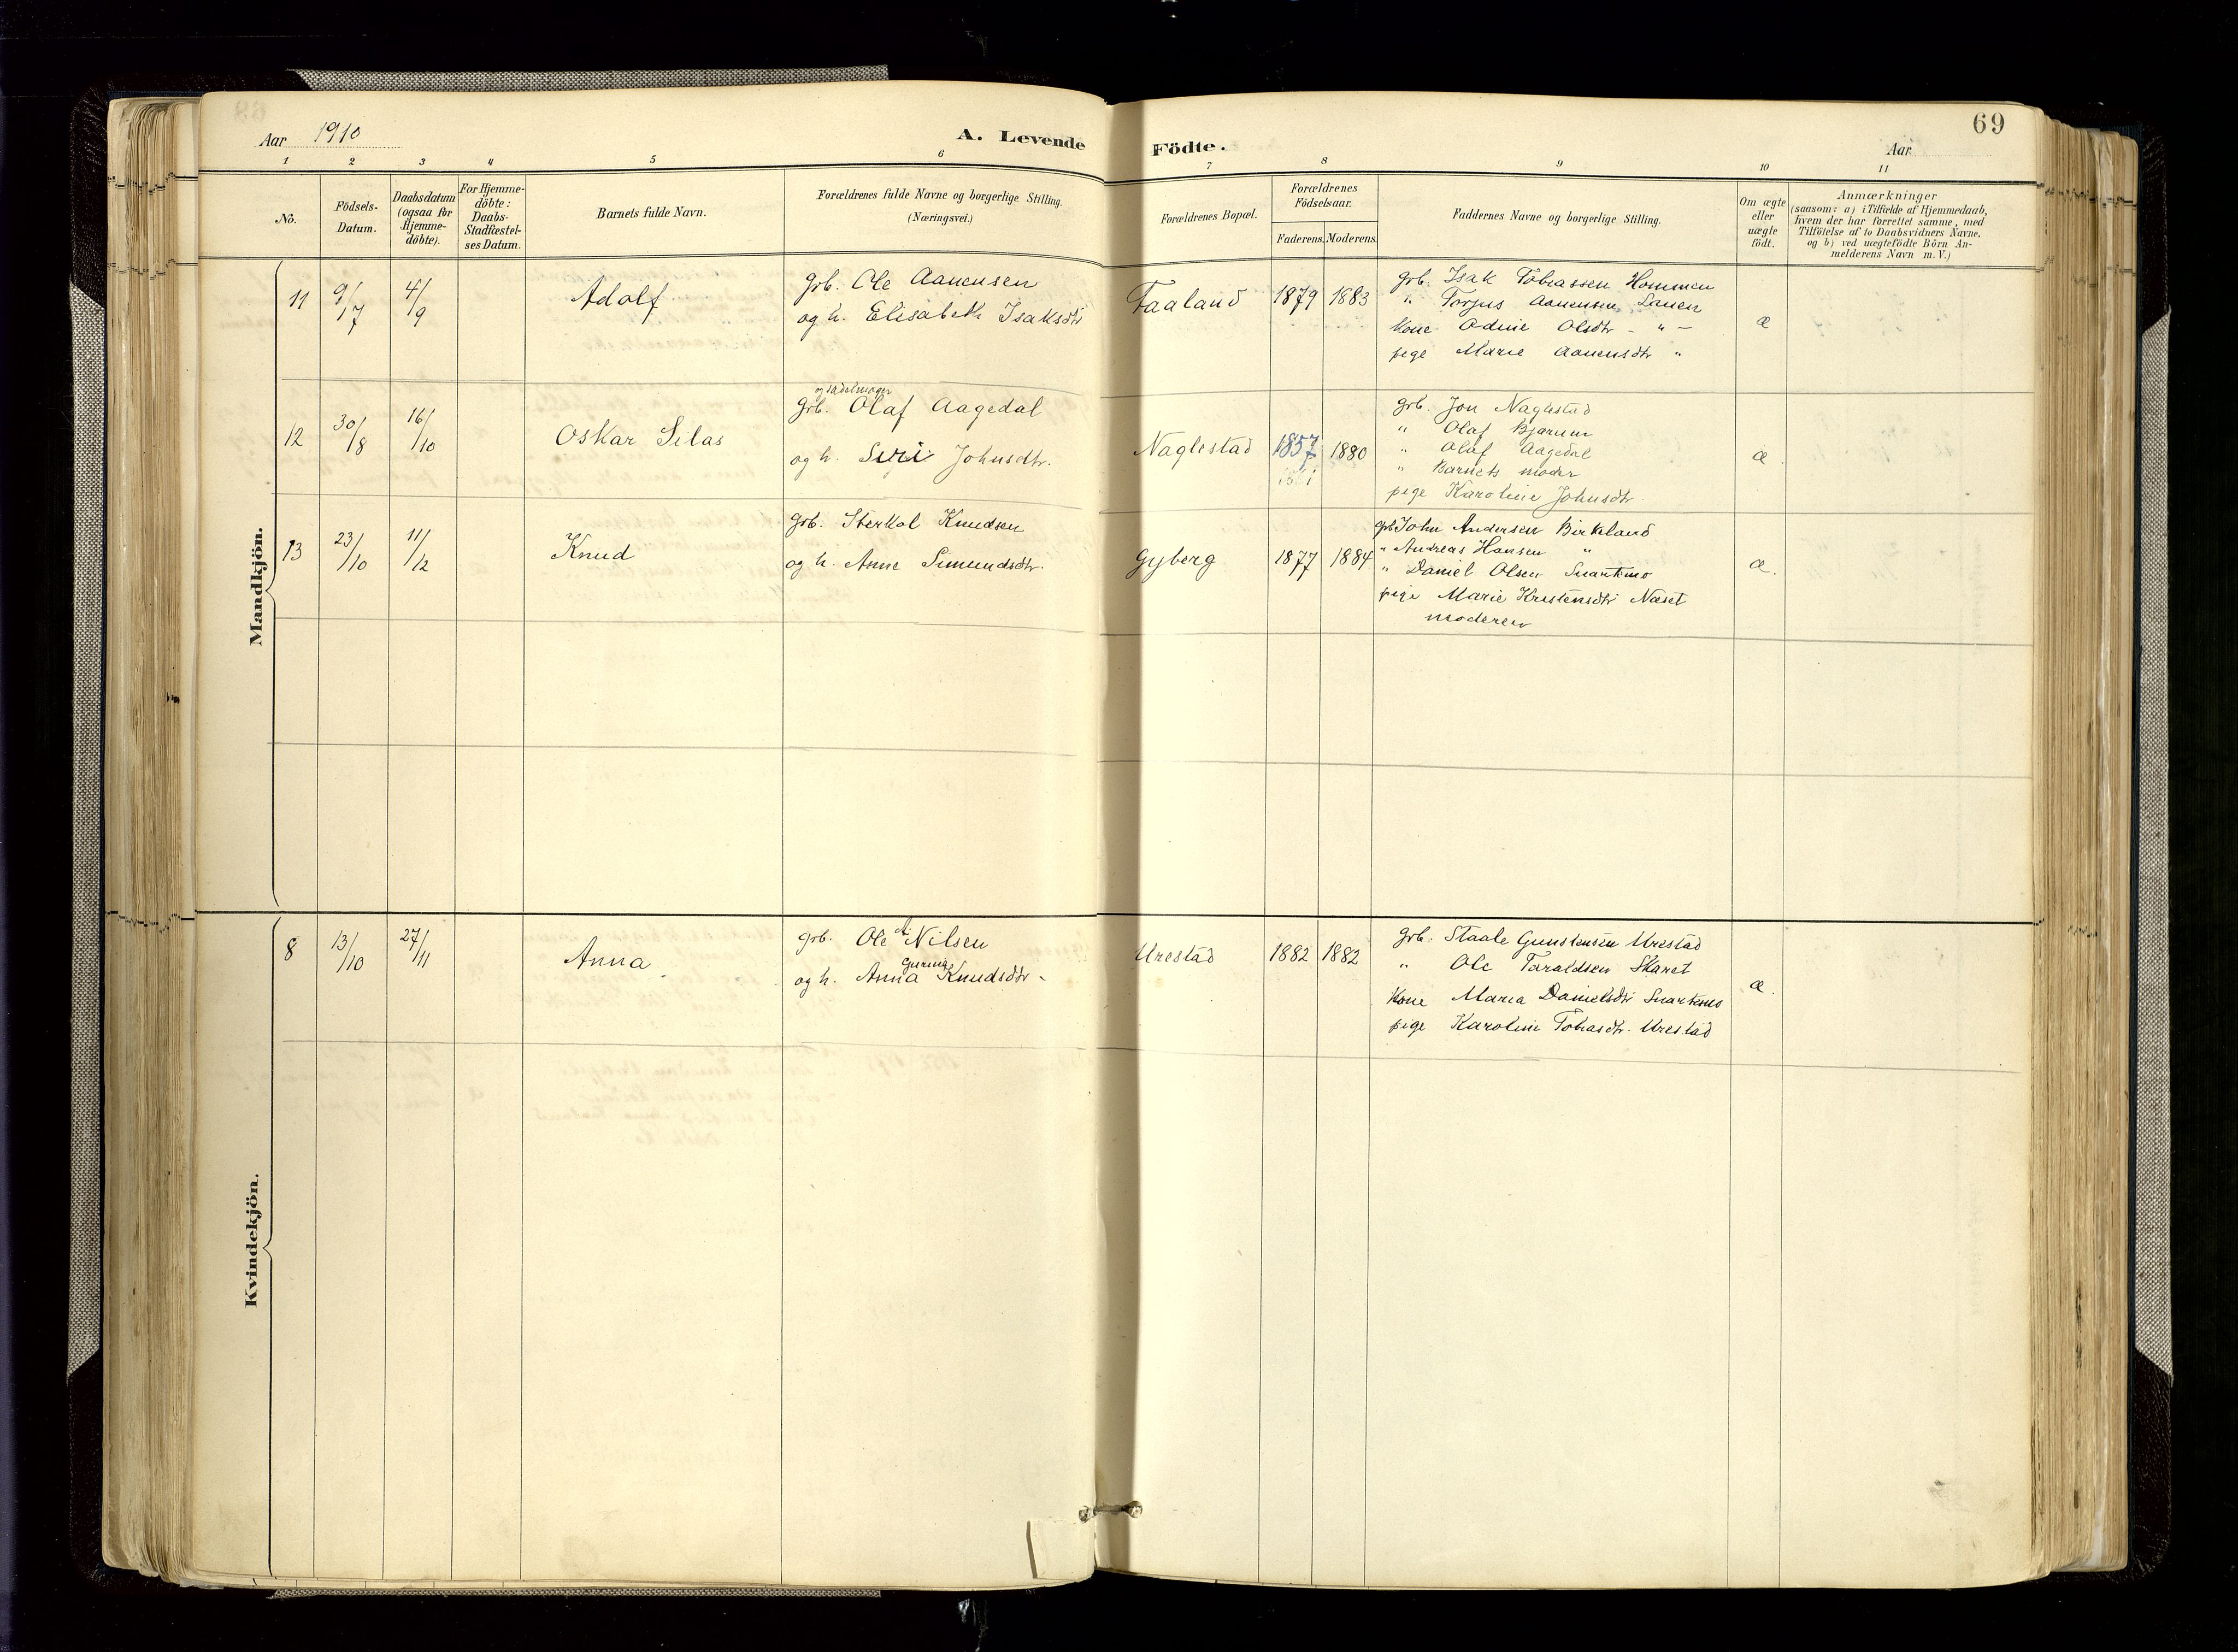 69
Aar 1910
A. Levende Födte.
Aar
1 2 3 4 5 6 7 8 9 10 11
No.
Födsels-
Datum.
Daabsdatum
(ogsaa for
Hjemme-
döbte).
For Hjemme-
döbte:
Daabs-
Stadfæstel-
ses Datum.
Barnets fulde Navn.
Forældrenes fulde Navne og borgerlige Stilling.
(Næringsvei.)
Forældrenes Bopæl.
Forældrenes
Födselsaar.
Faderens. Moderens.
Faddernes Navne og borgerlige Stilling.
Om ægte
eller
uægte
födt.
Anmærkninger
(saasom: a) i Tilfælde af Hjemmedaab,
hvem der har forrettet samme, med
Tilföielse af to Daabsvidners Navne.
og b) ved uægtefödte Börn An-
melderens Navn m. V.)
Mandkjön.
11 9/7 4/9 Adolf
grb. Ole Aanensen
og h. Elisabeth Isaksdtr
Faaland 1879 1883
grb. Isak Tobiassen Hommen
" Torjus Aanensen Lauen
Kone Odine Olsdtr - " -
pige Marie Aanensdtr "
æ
12 30/8 16/10 Oskar Silas
og sadelmager
grb. Olaf Aagedal
og h. Siri Johnsdtr.
Naglestad 1857 1880
grb. Jon Naglestad
" Olaf Bjærum
" Olaf Aagedal
" Barnets moder
pige Karoline Johnsdtr.
æ.
13 23/10 11/12 Knud
grb. Sterkol Knudsen
og h. Anne Simundsdtr.
Gyberg 1877 1884
grb John Andersen Birkeland
" Andreas Hansen "
" Daniel Olsen Snartemo
pige Marie Kristensdtr Næset
moderen
æ.
Kvindekjön.
8 13/10 27/11 Anna
grb. Ole Nilsen
Gurina
og h. Anna Knudsdtr.
Urestad 1882 1882
grb. Staale Gunstensen Urestad
" Ole Taraldsen Skaret
Kone Maria Danielsdtr Snartemo
pige Karoline Tobiasdtr. Urestad
æ.